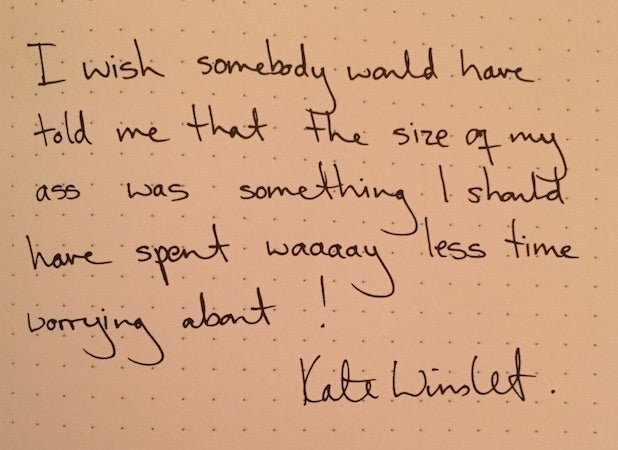 I wish somebody would have
told me that the size of my
ass was something I should
have spent waaaay less time
worrying about !
Kate Winslet.